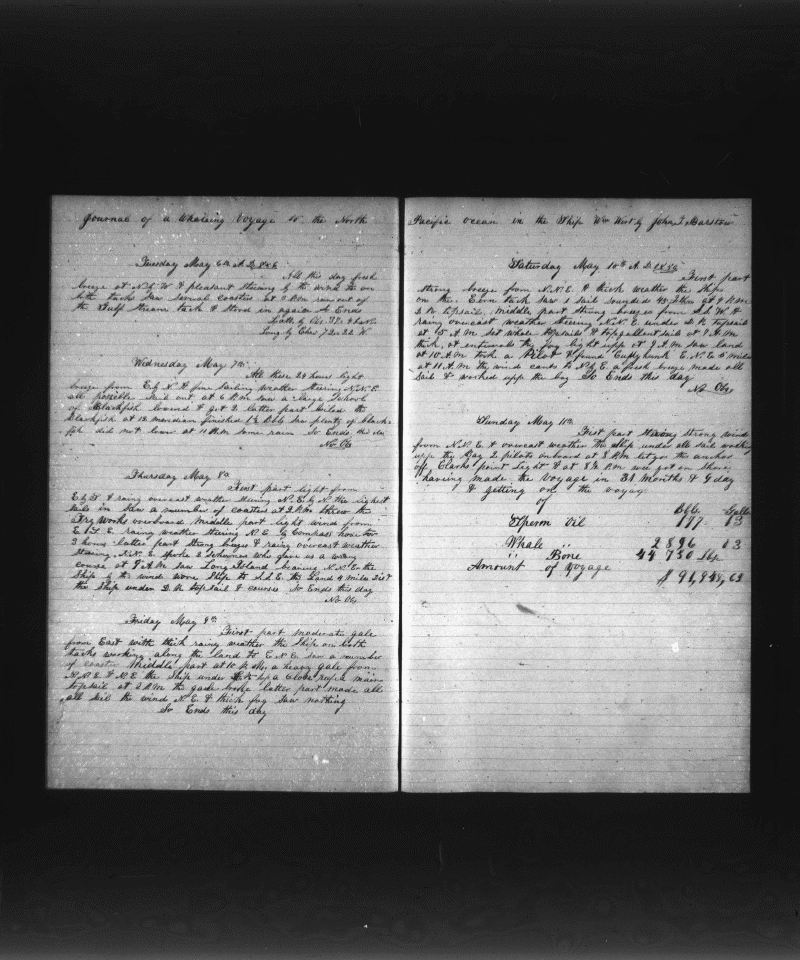 Journal of a Whaleing Voyage to the North
Tuesday May 6th A.D.
All this day fresh
breeze at N by W & pleasant Steering by the wind to on
both tacks Saw several coasters at 8 P.M. run out of
the Gulf Stream tack & Stood in again So Ends
Latt. by Obs. 37
Long by Chro 72 = 22 W
Wednesday May 7th
All these 24 hours light
breeze from E by N & fine Sailing weather Steering N.N.E.
all possible Sail out at 6 P.M. saw a large School
of Blackfish lowered & got 2 latter part boiled the
Blackfish at 12 meridian finished Bbls Saw plenty of black
fish did not lower at 11 P.M. some rain So Ends this day
No Obs
Thursday May 8th
First part light from
E by S & rainy overcast weather Steering N.E. by N. the lightest
Sails in Saw a number of coasters at 2 P.M. threw the
Try works overboard Middle part light wind from
E.S.E. rainy weather Steering N.E. by Compass
2 hours latter part Strong breeze & rainy overcast weather
Steering N.N.E. Spoke 2 Schooners who gave us a wrong
course at 9 A.M. saw Long Island bearing N.N.E. the
Ship by the wind wore Ship to S.S.E. the Land 4 miles Dist
the Ship under D.R. topsail & courses So Ends this day
No Obs
Friday May 9th
First part moderate gale
from East with thick rainy weather the Ship on both
tacks working along the land to E.N.E. Saw a number
of coaster Middle part at 10 P.M. a heavy gale from
N.N.E. & N.E. the Ship under a Close reefed main
topsail at 2 P.M. the gale broke latter part made all
all Sail the wind N.E. & thick fog Saw nothing
So Ends this day
Pacific ocean in the Ship Wm Wirt by John T. Barstow
Saturday May 10th A.D.
First part
strong breeze from N.N.E. & thick weather the Ship
on the E. tack Saw 1 sail Sounded 43 got 9 P.M.
D R topsail. Middle part Strong breezes from S by W &
rainy overcast weather Steering N.N.E. under D.R. topsail
at 5 A.M. Set whole topsails & topgallent sail at 7 A.M.
thick, at entervals the fog light upp at 9 A.M. saw land
at 10 A.M. took a Pilot & found Cuttyhunk E.N.E. 5 miles
at 11 A.M. the wind cants to N by E a fresh breeze made all
Sail & worked upp the bay So Ends this day
No Obs
Sunday May 11th
First part Strong strong winds
from N.N.E. & overcast weather the Ship under all sail working
upp the Bay 2 pilots onboard at 8 P.M. let go the anchor
off Clarks point Light & at 8½ P.M. we got on Shore
having made the Voyage in 31 Months & 9 day
& getting on the voyag
of
Bbls Galls
Sperm Oil 177 13
Whale " 2896 13
" Bone 44 730 lbs
Amount of Voyage
$ 91,948,62